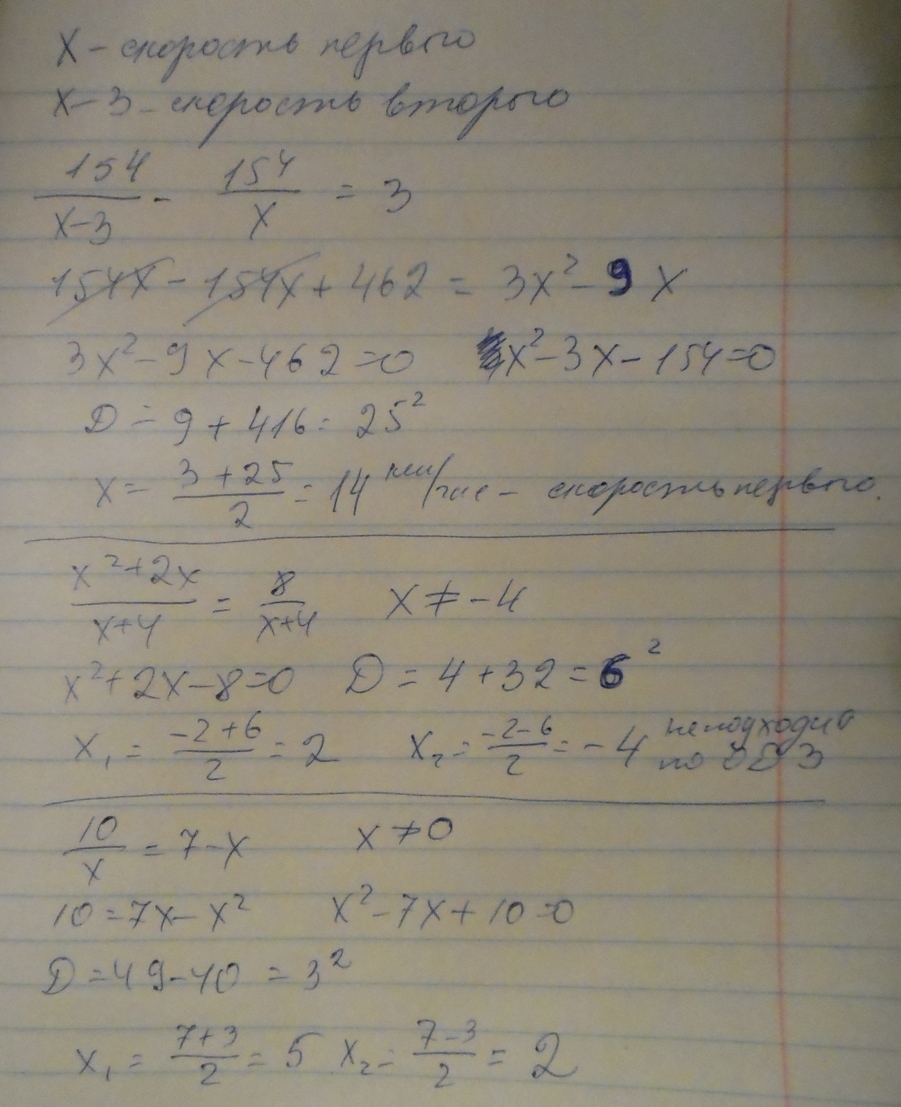 X - скорость первого
X-3 - скорость второго
154/(X-3) - 154/X = 3
154X - 154X + 462 = 3X² - 9X
3X² - 9X - 462 = 0 X² - 3X - 154 = 0
D = 9 + 416 = 25²
X = (3+25)/2 = 14 км/час - скорость первого.
(X²+2X)/(X+4) = 8/(X+4) X ≠ -4
X² + 2X - 8 = 0 D = 4 + 32 = 6²
X₁ = (-2+6)/2 = 2 X₂ = (-2-6)/2 = -4 не подходит по ОДЗ
10/X = 7 - X X ≠ 0
10 = 7X - X² X² - 7X + 10 = 0
D = 49 - 40 = 3²
X₁ = (7+3)/2 = 5 X₂ = (7-3)/2 = 2